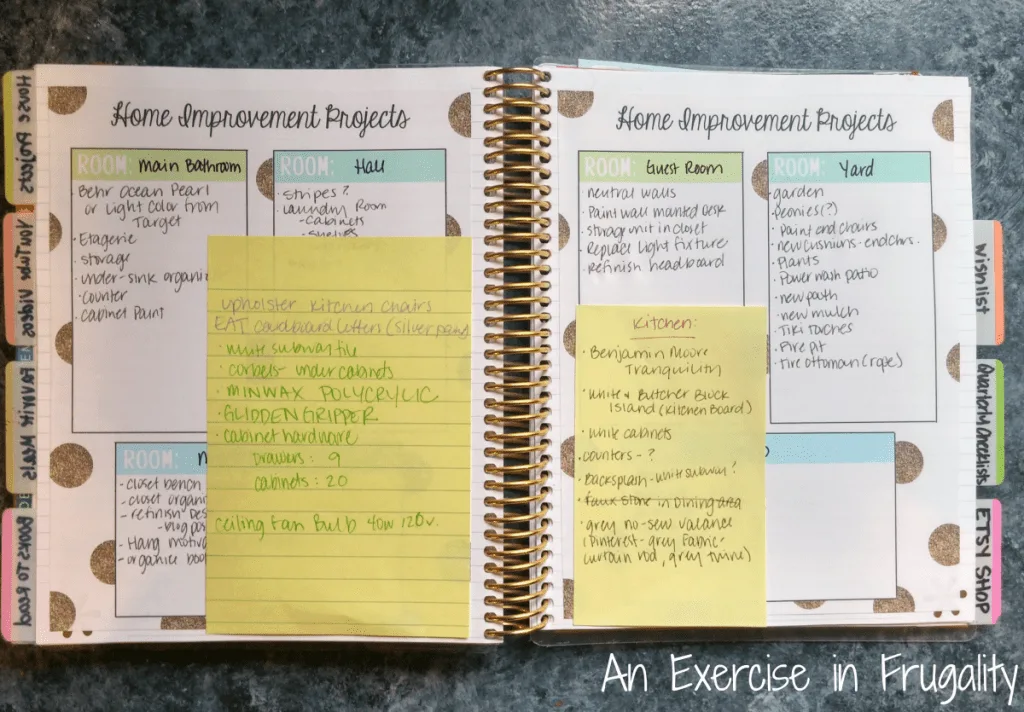 Home Improvement Projects
ROOM: Main Bathroom
Behr Ocean Pearl
or Light Color from
Target
· Etagerie
· storage
· under-sink organi
· counter
· cabinet Paint
ROOM: Hall
· stripes?
· Laundry Room
- cabinets
- shelves
ROOM:
· closet bench
- closet organi
- refinish des
- blog pos
- Hang motiva
- organize boo
upholster kitchen chairs
EAT cardboard letters (silver
· white subway tile
· corbels- under cabinets
· MINWAX POLYCRYLIC
· GLIDDEN GRIPPER
· cabinet hardware
drawers: 9
cabinets: 20
ceiling Fan Bulb 40w 120v.
Home Improvement Projects
ROOM: Guest Room
neutral walls
· Paint wall mounted desk
· storage unit in closet
· Replace light fixture
· Refinish headboard
ROOM: Yard
garden
· Peonies (?)
· Paint end chairs
· new cushions- end chrs.
· Plants
· Power wash patio
· new path
· new mulch
· Tiki Torches
· Fire pit
· Tire ottoman (rope)
Kitchen:
· Benjamin Moore
Tranquility
· White & Butcher Block
Island (Kitchen Board)
· white cabinets
· counters - ?
· Backsplash - white subway?
· Faux Stone in Dining area
· grey no-sew valance
(Pinterest- grey fabric-
curtain rod, grey twine)
House Projects
Books to Read
wish list
Quarterly Checklists
ETSY SHOP
An Exercise in Frugality